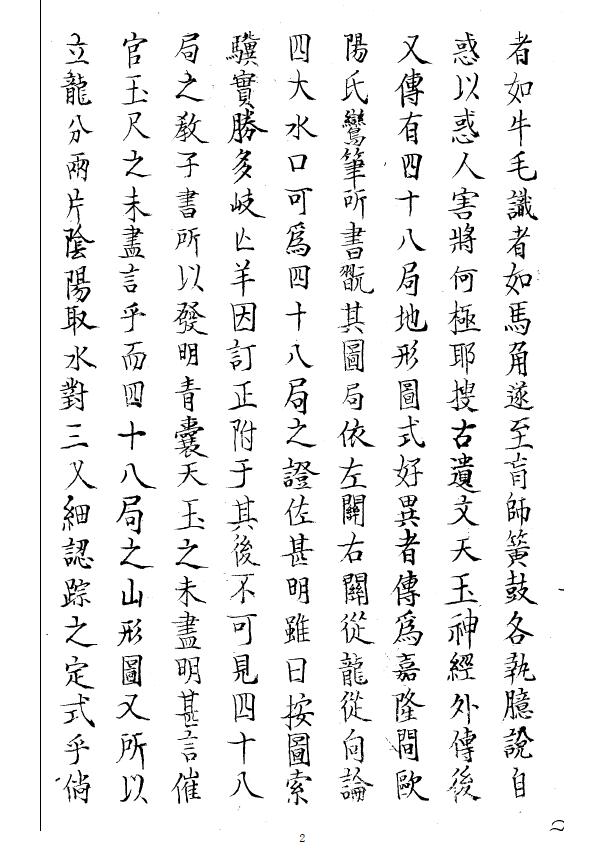 者如牛毛識者如馬角遂至盲師簧鼓各執臆說自
惑以惑人害將何極耶搜古遺文天玉神經外傳後
又傳有四十八局地形圖式好異者傳爲嘉隆間歐
陽氏鸞筆所書翫其圖局依左關右關從龍從向論
四大水口可爲四十八局之證佐甚明雖曰按圖索
驥實勝多岐亾羊因訂正附于其後不可見四十八
局之教子書所以發明青囊天玉之未盡明甚言催
官玉尺之未盡言乎而四十八局之山形圖又所以
立龍分兩片陰陽取水對三乂細認踪之定式乎倘
2